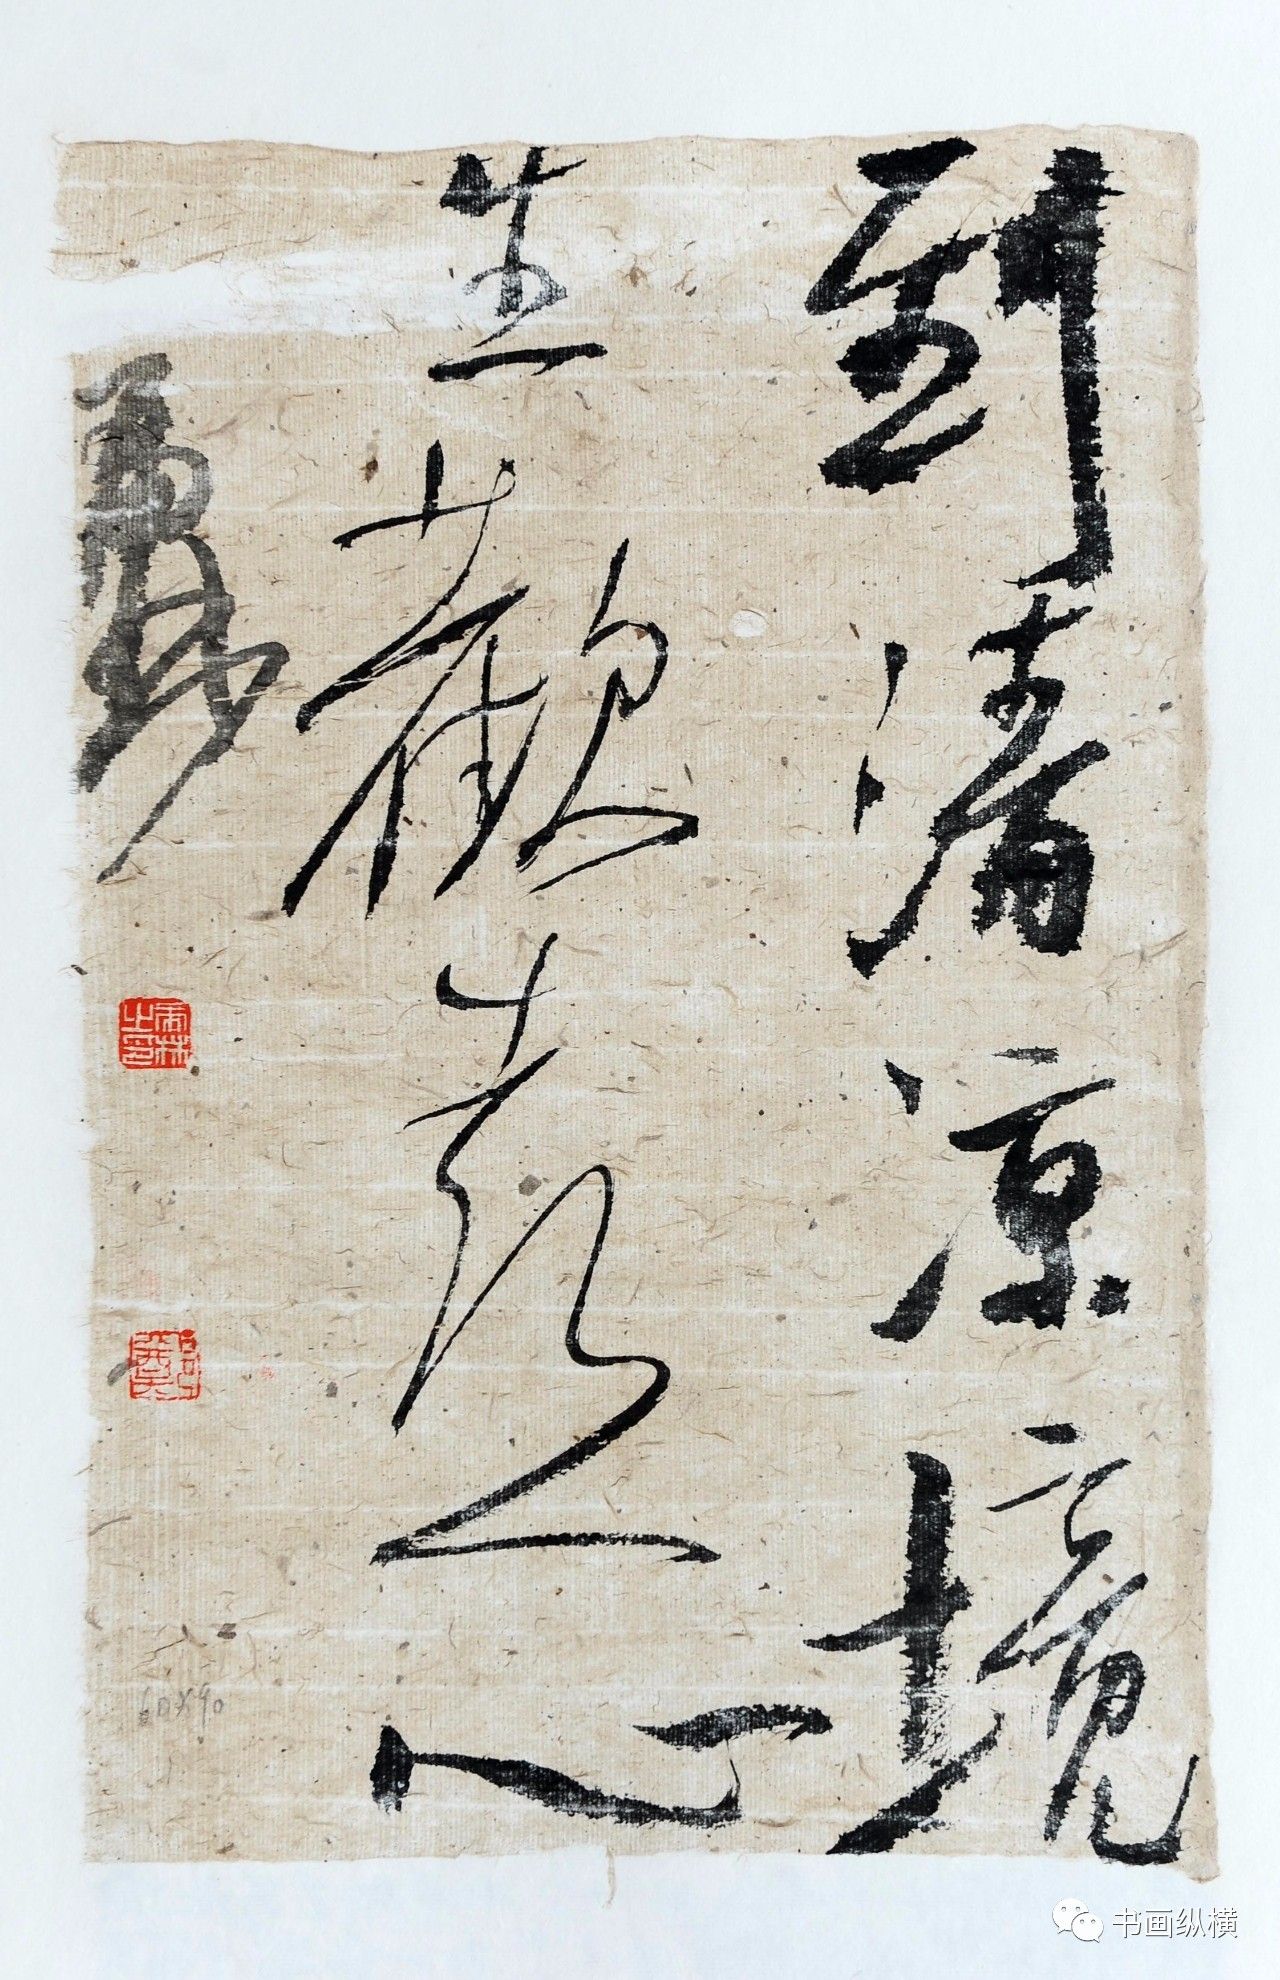 到清凉境
生歡喜心
60X90
书画纵横